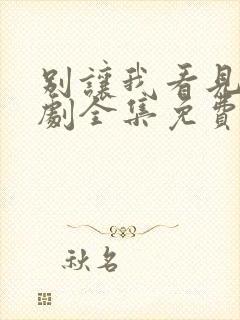 別讓我看見
劇全集免費
秋名